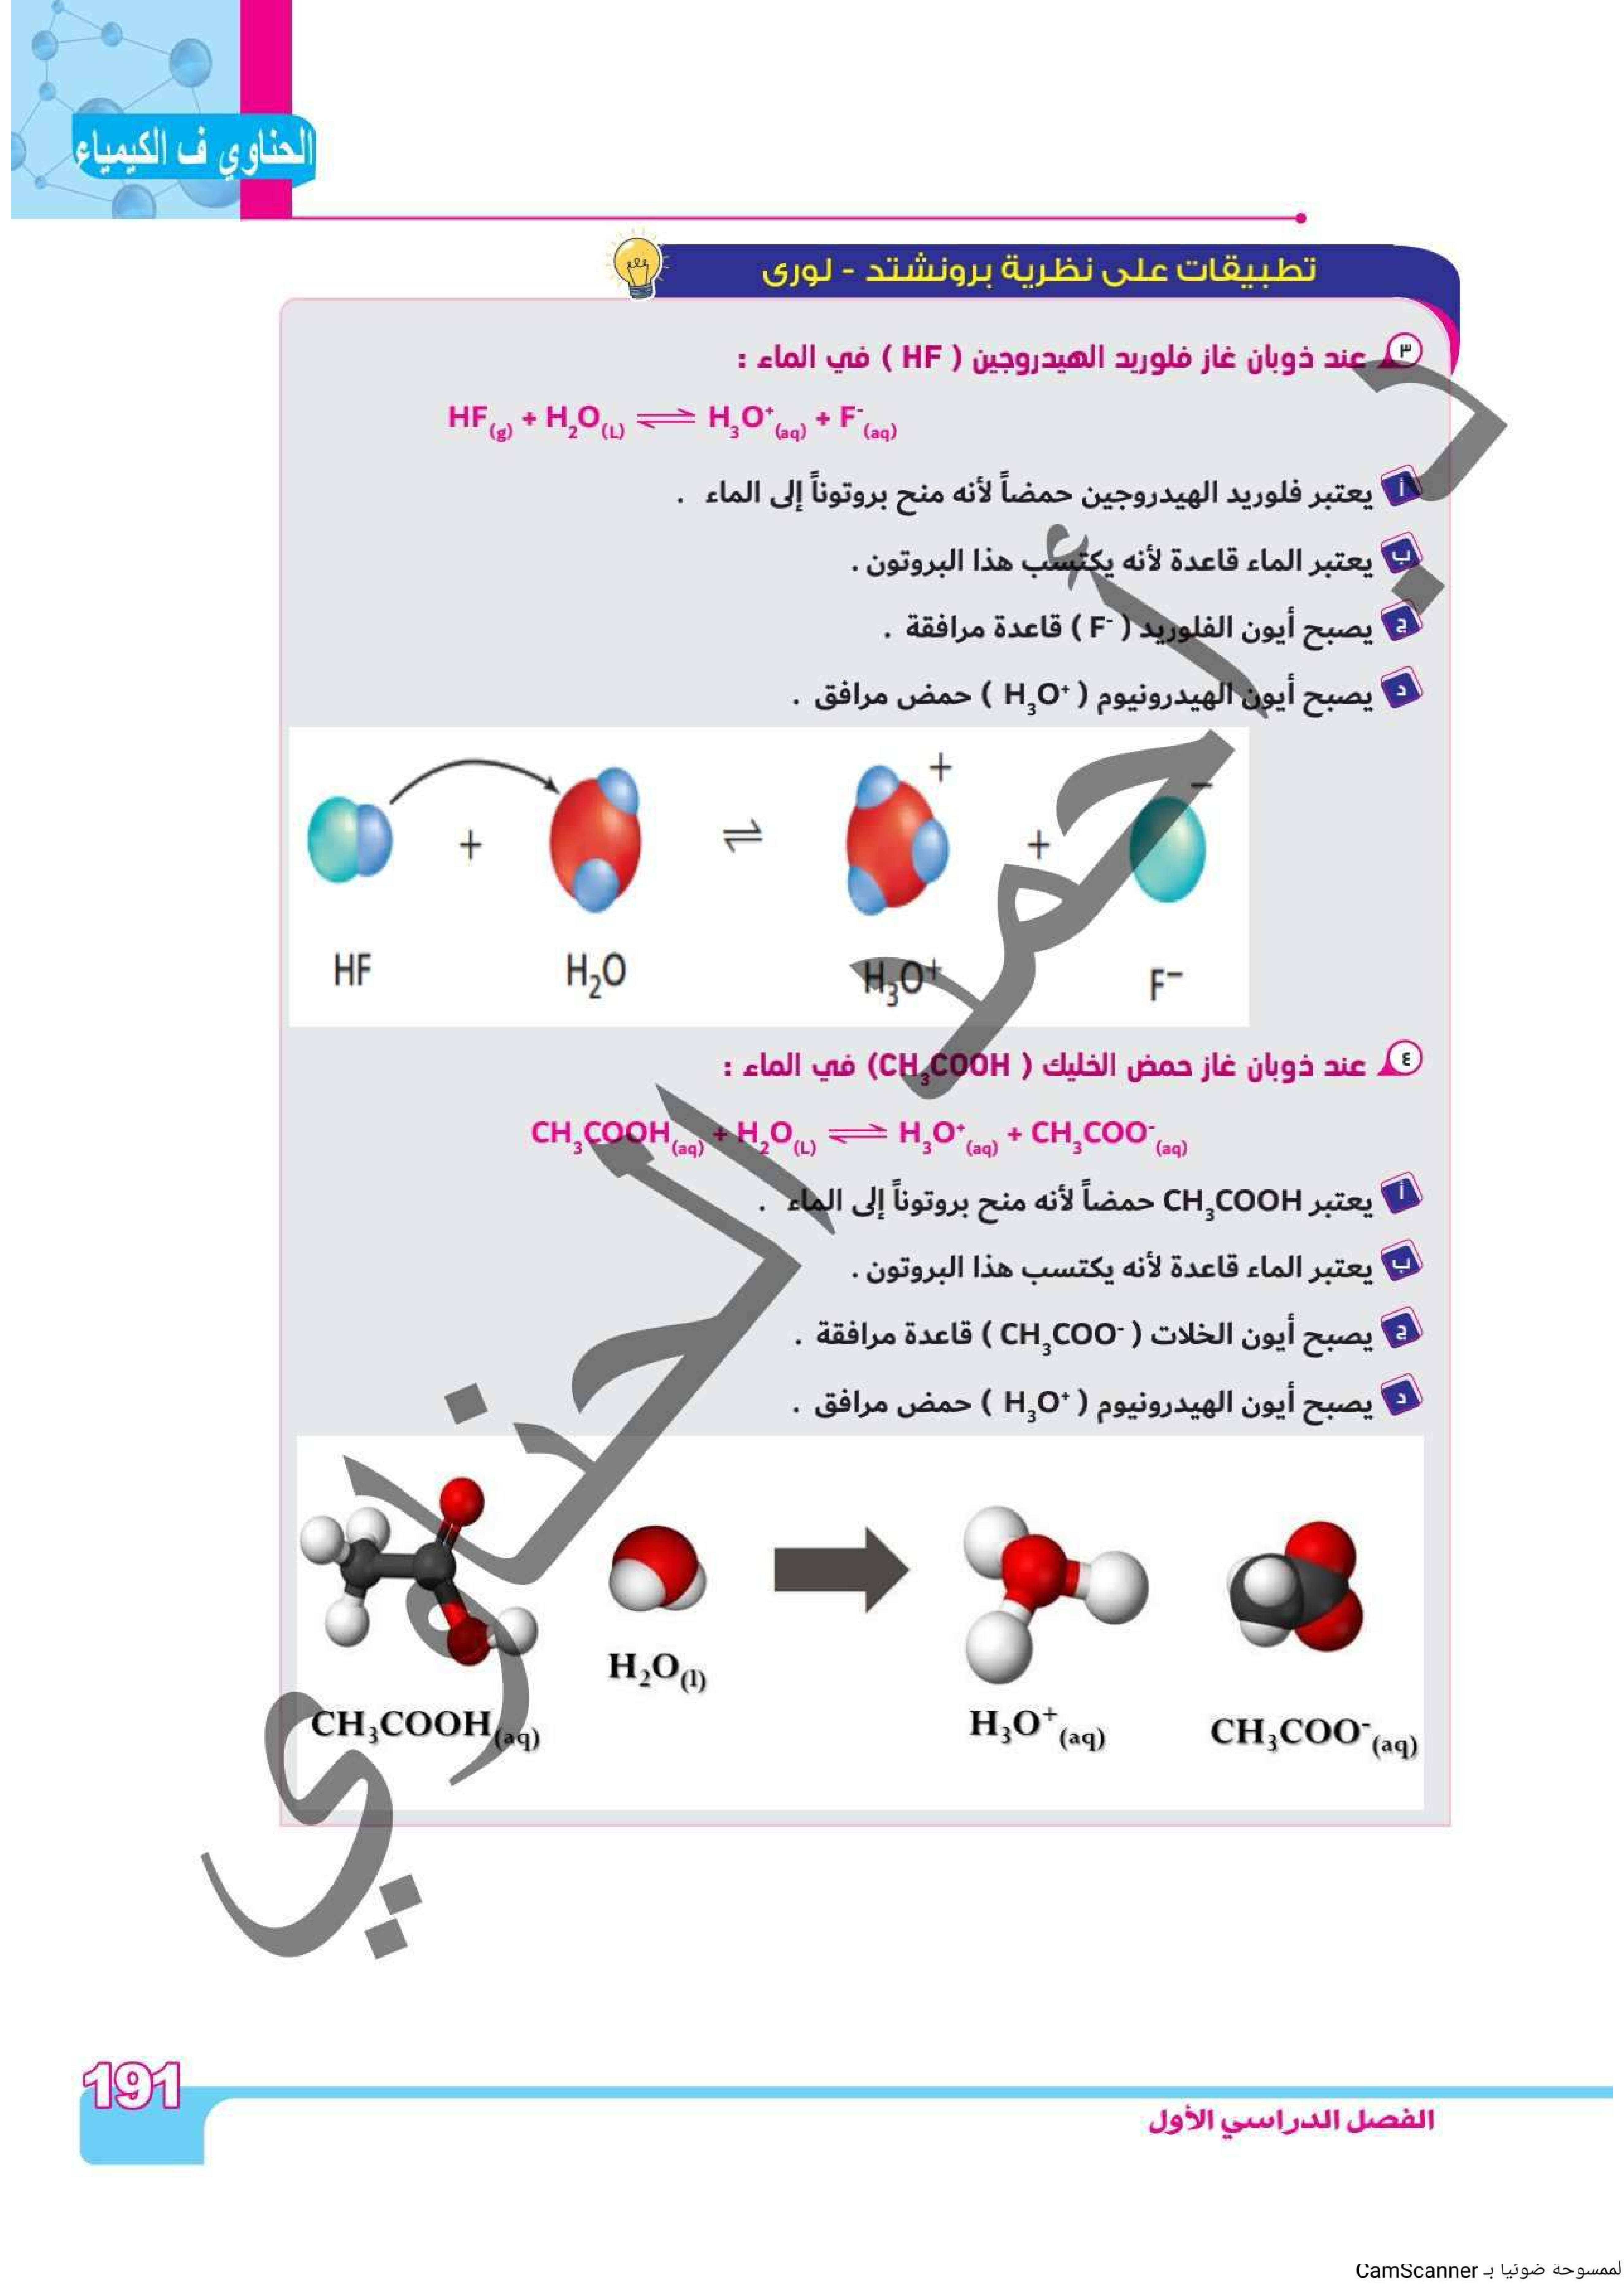 الحناوي ف الكيمياء
تطبيقات على نظرية برونشتد - لورى
٣ عند ذوبان غاز فلوريد الهيدروجين ( HF ) في الماء :
HF(g) + H₂O(L) ⇌ H₃O⁺(aq) + F⁻(aq)
أ يعتبر فلوريد الهيدروجين حمضاً لأنه منح بروتوناً إلى الماء .
ب يعتبر الماء قاعدة لأنه يكتسب هذا البروتون .
ج يصبح أيون الفلوريد ( F⁻ ) قاعدة مرافقة .
د يصبح أيون الهيدرونيوم ( H₃O⁺ ) حمض مرافق .
+ ⇌ + + −
HF H₂O H₃O⁺ F⁻
٤ عند ذوبان غاز حمض الخليك ( CH₃COOH) في الماء :
CH₃COOH(aq) + H₂O(L) ⇌ H₃O⁺(aq) + CH₃COO⁻(aq)
أ يعتبر CH₃COOH حمضاً لأنه منح بروتوناً إلى الماء .
ب يعتبر الماء قاعدة لأنه يكتسب هذا البروتون .
ج يصبح أيون الخلات ( CH₃COO⁻ ) قاعدة مرافقة .
د يصبح أيون الهيدرونيوم ( H₃O⁺ ) حمض مرافق .
CH₃COOH(aq) H₂O(l) H₃O⁺(aq) CH₃COO⁻(aq)
د. أحمد الحناوي
191
الفصل الدراسي الأول
لممسوحة ضوئيا بـ CamScanner